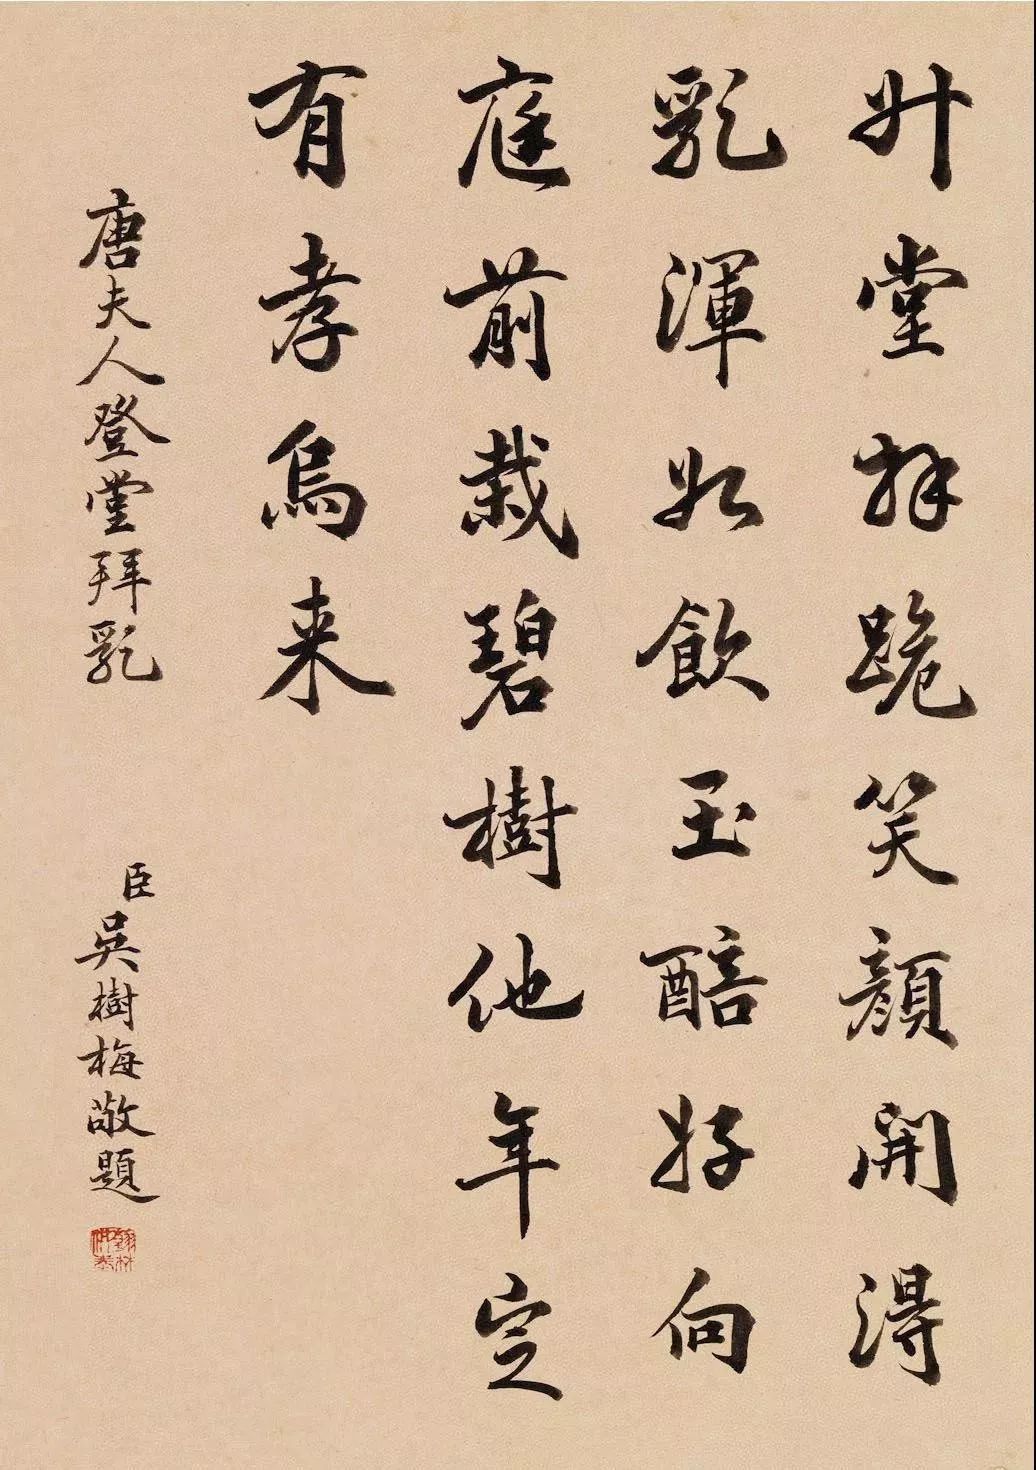 升堂拜跪笑顏開得
乳渾如飲玉醅好向
庭前栽碧樹他年定
有孝烏来
唐夫人登堂拜乳
臣吳樹梅敬題